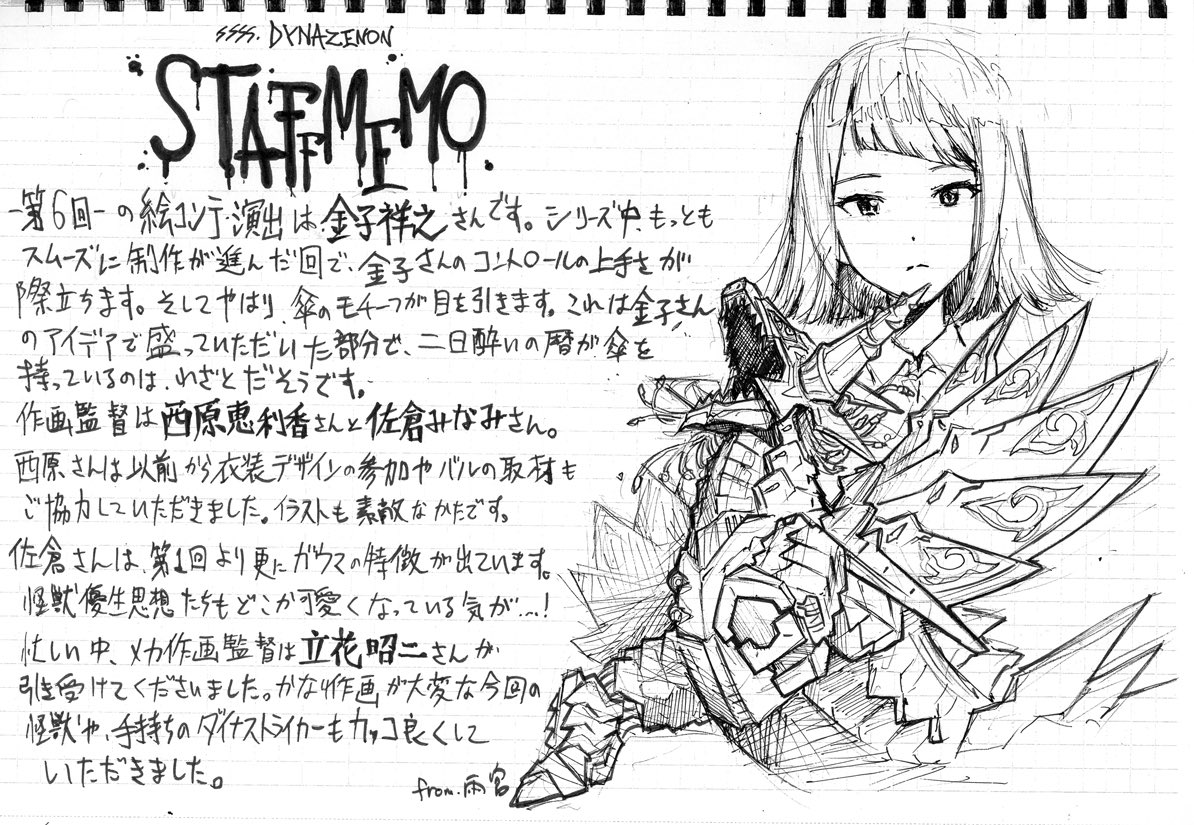 SSSS. DYNAZENON
STAFF MEMO
-第6回-の絵コンテ・演出は金子祥之さんです。シリーズ中、もっとも
スムーズに制作が進んだ回で、金子さんのコントロールの上手さが
際立ちます。そしてやはり、傘のモチーフが目を引きます。これは金子さん
のアイデアで盛っていただいた部分で、二日酔いの暦が傘を
持っているのは、わざとだそうです。
作画監督は西原恵利香さんと佐倉みなみさん。
西原さんは以前から衣装デザインの参加やバルの取材も
ご協力していただきました。イラストも素敵なかたです。
佐倉さんは、第1回より更にガウマの特徴が出ています。
怪獣優生思想たちもどこか可愛くなっている気が…!
忙しい中、メカ作画監督は立花昭二さんが
引き受けてくださいました。かなり作画が大変な今回の
怪獣や、手持ちのダイナストライカーもカッコ良くして
いただきました。
from.雨宮